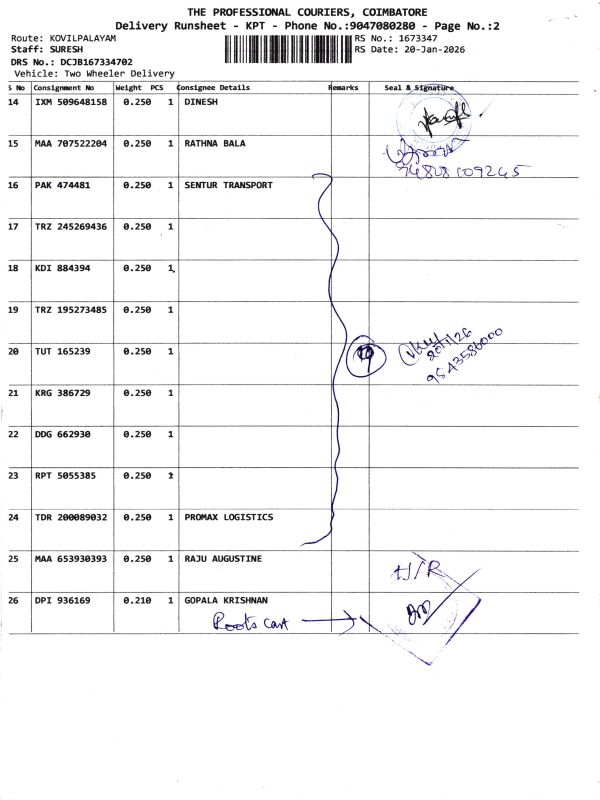 THE PROFESSIONAL COURIERS, COIMBATORE
Delivery Runsheet - KPT - Phone No.:9047080280 - Page No.:2
Route: KOVILPALAYAM RS No.: 1673347
Staff: SURESH RS Date: 20-Jan-2026
DRS No.: DCJB167334702
Vehicle: Two Wheeler Delivery
S No Consignment No Weight PCS Consignee Details Remarks Seal & Signature
14 IXM 509648158 0.250 1 DINESH
15 MAA 707522204 0.250 1 RATHNA BALA
16 PAK 474481 0.250 1 SENTUR TRANSPORT
17 TRZ 245269436 0.250 1
18 KDI 884394 0.250 1
19 TRZ 195273485 0.250 1
20 TUT 165239 0.250 1
20/1/26
9543586000
21 KRG 386729 0.250 1
22 DDG 662930 0.250 1
23 RPT 5055385 0.250 1
24 TDR 200089032 0.250 1 PROMAX LOGISTICS
25 MAA 653930393 0.250 1 RAJU AUGUSTINE
H/R
26 DPI 936169 0.210 1 GOPALA KRISHNAN
Roots cast